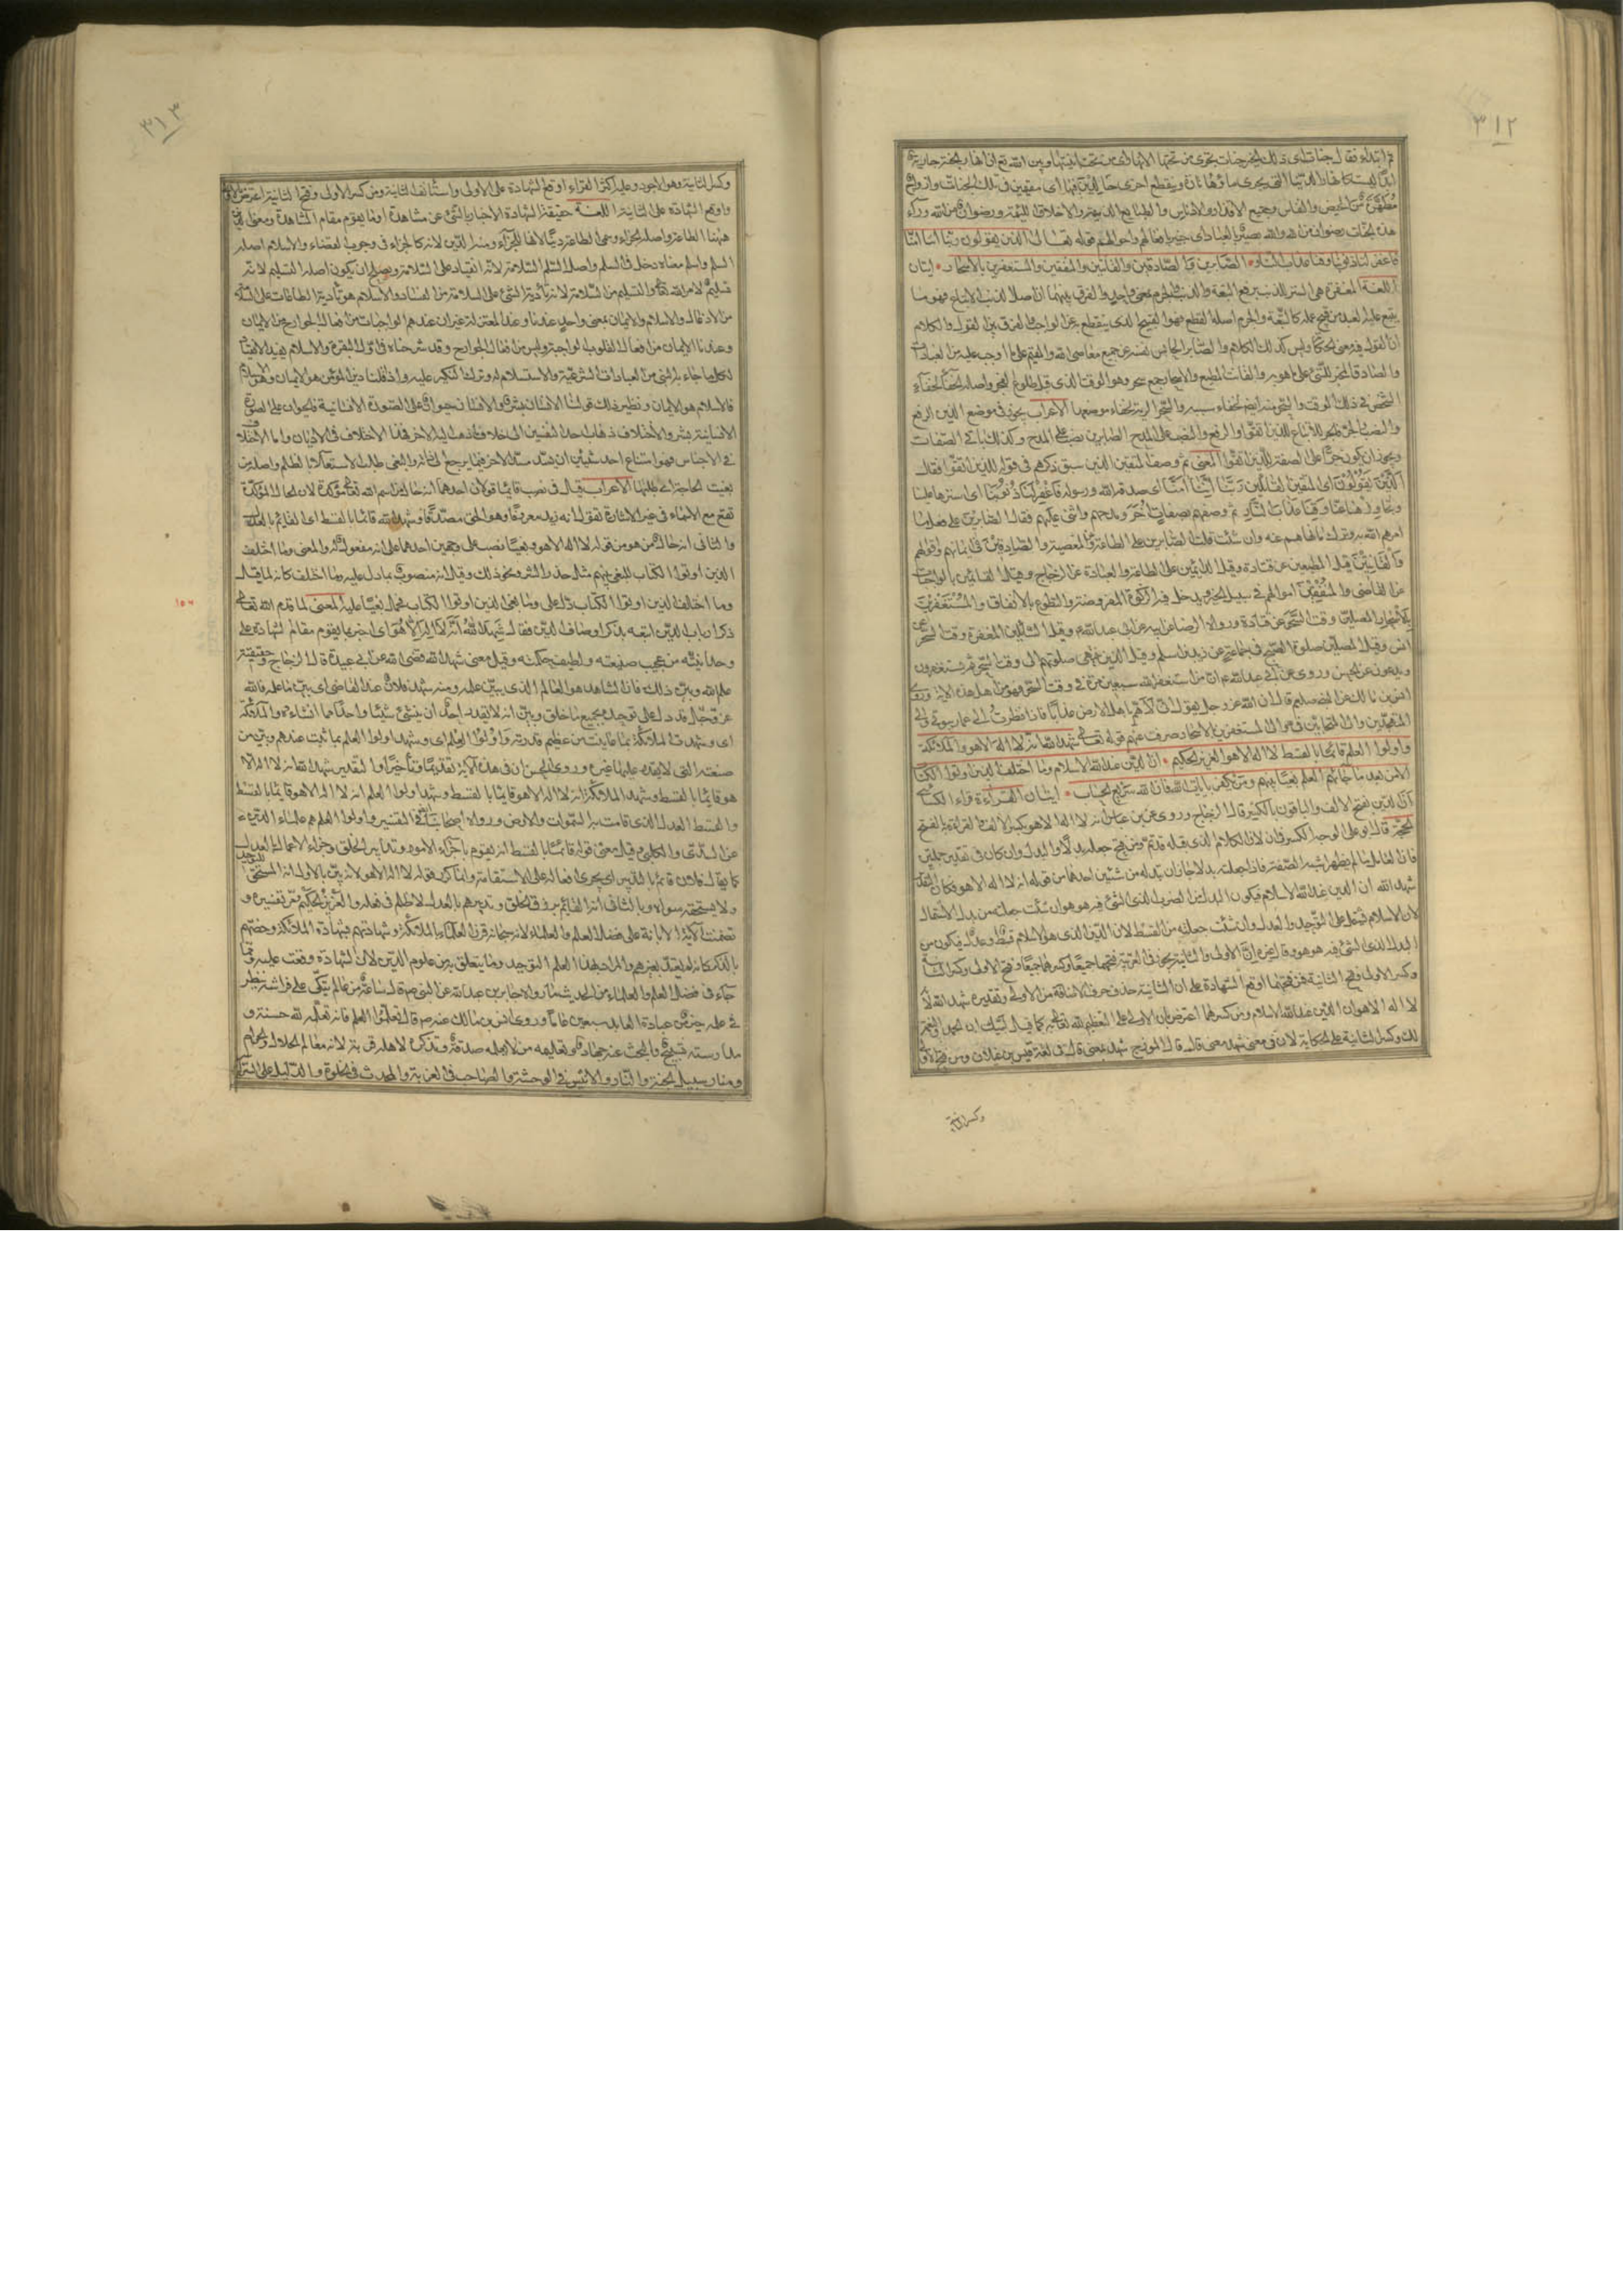 ٣١٢
ثم ابتداء فقال جنات اى ذلك الخير جنات تجرى من تحتها الانهار اى من تحت ابنيتها وبين الله تع ان انهار الجنة جارية
ابدا ليست كانهار الدنيا التى يجرى ماؤها تارة وينقطع اخرى خالدين فيها اى مقيمين فى تلك الجنات وازواج
مطهرة من الحيض والنفاس وجميع الاقذار والادناس والطبايع الذميمة والاخلاق اللئيمة ورضوان من الله وراء
هذه الجنات رضوان من الله والله بصير بالعباد اى خبير بافعالهم واحوالهم قوله تعالى الذين يقولون ربنا اننا امنا
فاغفر لنا ذنوبنا وقنا عذاب النار الصابرين والصادقين والقانتين والمنفقين والمستغفرين بالاسحار ايتان
اللغة المغفرة هى الستر للذنب برفع التبعة والذنب والجرم بمعنى واحد والفرق بينهما ان اصل الذنب الاتباع فهو مما
يتبع عليه العبد من قبيح عمله كالتبعة والجرم اصله القطع فهو القبيح الذى ينقطع به عن الواجب والفرق بين القول والكلام
ان القول فيه معنى الحكاية وليس كذلك الكلام والصابر الحابس نفسه عن جميع معاصى الله والمقيم على ما اوجب عليه من العبادات
والصادق المخبر بالشئ على ما هو به والقانت المطيع والاسحار جمع سحر وهو الوقت الذى قبل طلوع الفجر واصله الخفاء لخفاء
الشخص فى ذلك الوقت والسحر منه ايضا لخفاء سببه والسحر الرية لخفاء موضعها الاعراب يجوز فى موضع الذين الرفع
والنصب والجر فالجر للاتباع للذين اتقوا والرفع والنصب على المدح الصابرين نصب على المدح وكذلك باقى الصفات
ويجوز ان يكون جرا على الصفة للذين اتقوا المعنى ثم وصف المتقين الذين سبق ذكرهم فى قوله للذين اتقوا فقال
الذين يقولون اى المتقين القائلين ربنا اننا امنا اى صدقنا الله ورسوله فاغفر لنا ذنوبنا اى استرها علينا
وتجاوز عنها عنا وقنا عذاب النار ثم وصفهم بصفات اخر ومدحهم واثنى عليهم فقال الصابرين على فعل ما
امرهم الله به وترك ما نهاهم عنه وان شئت قلت الصابرين على الطاعة وعن المعصية والصادقين فى ايمانهم واقوالهم
والقانتين قيل المطيعين عن قتادة وقيل الدائمين على الطاعة والعبادة عن الزجاج وقيل القائمين بالواجبات
عن القاضى والمنفقين اموالهم فى سبيل الخير ويدخل فيه الزكوة المفروضة والتطوع بالانفاق والمستغفرين
بالاسحار المصلين وقت السحر عن قتادة ورواه الرضا عن ابيه عن ابى عبدالله ع وقيل السائلين المغفرة وقت السحر عن
انس وقيل المصلين صلوة الصبح فى جماعة عن زيد بن اسلم وقيل الذين تنتهى صلوتهم الى وقت السحر ثم يستغفرون
ويدعون عن الحسن وروى عن ابى عبدالله ع ان من استغفر الله سبعين مرة فى وقت السحر فهو من اهل هذه الاية وروى
انس بن مالك عن النبى صلعم قال ان الله عز وجل يقول انى لاهم باهل الارض عذابا فاذا نظرت الى عمار بيوتى والى
المتهجدين والى المتحابين فى والى المستغفرين بالاسحار صرفت عنهم قوله تعالى شهد الله انه لا اله الا هو والملائكة
واولوا العلم قائما بالقسط لا اله الا هو العزيز الحكيم ان الدين عند الله الاسلام وما اختلف الذين اوتوا الكتاب
الا من بعد ما جاءهم العلم بغيا بينهم ومن يكفر بايات الله فان الله سريع الحساب ايتان القراءة قراء الكسائى
ان الدين بفتح الالف والباقون بالكسر قال الزجاج وروى عن ابن عباس انه لا اله الا هو بكسر الالف والقراءة بالفتح
الحجة قال ابو على الوجه الكسر فى ان لان الكلام الذى قبله قد تم ومن فتح جعله بدلا والبدل وان كان فى تقدير جملتين
فان العامل لما لم يظهر اشبه الصفة فاذا جعلته بدلا جاز ان تبدله من شيئين احدهما من قوله انه لا اله الا هو فكان التقدير
شهد الله ان الدين عند الله الاسلام فيكون البدل من الضرب الذى الشئ فيه هو هو وان شئت جعلته من بدل الاشتمال
لان الاسلام يشتمل على التوحيد والعدل وان شئت جعلته من القسط لان الدين الذى هو الاسلام قسط وعدل فيكون من
البدل الذى الشئ فيه هو هو وقال غيره ان الاولى والثانية يجوز فى العربية فتحهما جميعا وكسرهما جميعا وفتح الاولى وكسر الثانية
وكسر الاولى وفتح الثانية فمن فتحهما اوقع الشهادة على ان الثانية وحذف حرف الاضافة من الاولى وتقديره شهد الله لانه
لا اله الا هو ان الدين عند الله الاسلام ومن كسرهما اعترض بان الاولى على التعظيم لله تعالى به كما قيل لبيك ان الحمد والنعمة
لك وكسر الثانية على الحكاية لان فى معنى شهد معنى قال قال المؤرج شهد بمعنى قال فى لغة قيس بن عيلان ومن فتح الاولى
وكسر الثانية
٣١٣
وكسر الثانية وهو الاجود وعليه اكثر القراء اوقع الشهادة على الاولى واستأنف الثانية ومن كسر الاولى وفتح الثانية اعترض بالاولى
واوقع الشهادة على الثانية اللغة حقيقة الشهادة الاخبار بالشئ عن مشاهدة او ما يقوم مقام المشاهدة ومعنى الدين
ههنا الطاعة واصله الجزاء وسمى الطاعة دينا لانها للجزاء ومنه الدين لانه كالجزاء فى وجوب القضاء والاسلام اصله
السلم واسلم معناه دخل فى السلم واصل السلم السلامة لانه انقياد على السلامة ويصلح ان يكون اصله التسليم لانه
تسليم لامر الله تعالى والتسليم من السلامة لانه تأدية الشئ على السلامة من الفساد والاسلام هو تأدية الطاعات على السلامة
من الادغال والاسلام والايمان بمعنى واحد عندنا وعند المعتزلة غير ان عندهم الواجبات من افعال الجوارح من الايمان
وعندنا الايمان من افعال القلوب الواجبة وليس من افعال الجوارح وقد شرحناه فى اول البقرة والاسلام يفيد الانقياد
لكل ما جاء به النبى من العبادات الشرعية والاستسلام له وترك النكير عليه واذا قلنا دين المؤمن هو الايمان وهو الاسلام
فالاسلام هو الايمان ونظير ذلك قولنا الانسان بشر والانسان حيوان على الصورة الانسانية فالحيوان على الصورة
الانسانية بشر والاختلاف ذهاب احد النفسين الى خلاف ما ذهب اليه الاخر فهذا الاختلاف فى الاديان واما الاختلاف
فى الاجناس فهو امتناع احد شيئين ان يسد مسد الاخر فيما يرجع الى ذاته والبغى طلب الاستعلاء بالظلم واصله من
بغيت الحاجة اى طلبتها الاعراب قيل فى نصب قائما قولان احدهما انه حال من اسم الله تعالى مؤكدة لان الحال المؤكدة
تقع مع الاسماء فى غير الاشارة تقول انه زيد معروفا وهو الحق مصدقا وشهد الله قائما بالقسط اى القائم بالعدل
والثانى انه حال من هو من قوله لا اله الا هو وبغيا نصب على وجهين احدهما على انه مفعول له والمعنى وما اختلف
الذين اوتوا الكتاب للبغى بينهم مثل حذر الشر ونحو ذلك وقيل انه منصوب بما دل عليه وما اختلف كانه لما قيل
وما اختلف الذين اوتوا الكتاب دل على وما بغى الذين اوتوا الكتاب فحمل بغيا عليه المعنى لما قدم الله تعالى
ذكر ارباب الدين اتبعه بذكر اوصاف الدين فقال شهد الله انه لا اله الا هو اى اخبر بما يقوم مقام الشهادة على
وحدانيته من عجيب صنعته ولطيف حكمته وقيل معنى شهد الله قضى الله عن ابى عبيدة قال الزجاج وحقيقته
علم الله وبين ذلك فان الشاهد هو العالم الذى يبين علمه ومنه شهد فلان عند القاضى اى بين ما علمه فالله
عز وجل قد دل على توحيده بجميع ما خلق وبين انه لا يقدر احد ان ينشئ شيئا واحدا مما انشاءه والملائكة
اى وشهدت الملائكة بما عاينت من عظيم قدرته واولوا العلم اى وشهد اولوا العلم بما ثبت عندهم وتبين من
صنعته التى لا يقدر عليها غيره وروى عن الحسن ان فى هذه الاية تقديما وتأخيرا والتقدير شهد الله انه لا اله الا
هو قائما بالقسط وشهد الملائكة انه لا اله الا هو قائما بالقسط وشهد اولوا العلم انه لا اله الا هو قائما بالقسط
والقسط العدل الذى قامت به السموات والارض ورواه اصحابنا فى التفسير واولوا العلم هم علماء الدين
عن السدى والكلبى وقيل معنى قوله قائما بالقسط انه يقوم باجراء الامور وتدابير الخلق وجزاء الاعمال بالعدل
كما يقال فلان قائم بالتدبير اى يجرى افعاله على الاستقامة وانما كرر قوله لا اله الا هو لانه بين بالاول انه المستحق للتوحيد
ولا يستحقه سواه وبالثانى انه القائم برزق الخلق وتدبيرهم بالعدل لا ظلم فى فعله والعزيز الحكيم مر تفسيره و
تضمنت الاية الابانة على فضل العلم والعلماء لانه سبحانه قرن العلماء بالملائكة وشهادتهم بشهادة الملائكة وخصهم
بالذكر كانه لم يعتد بغيرهم والمراد بهذا العلم التوحيد وما يتعلق به من علوم الدين لان الشهادة وقعت عليه ومما
جاء فى فضل العلم والعلماء من الحديث ما رواه جابر بن عبدالله عن النبى ص قال ساعة من عالم يتكى على فراشه ينظر
فى علمه خير من عبادة العابد سبعين عاما وروى انس بن مالك عنه ص قال تعلموا العلم فان تعلمه لله حسنة و
مدارسته تسبيح والبحث عنه جهاد وتعليمه من لا يعلمه صدقة وتذكره لاهله قربة لانه معالم الحلال والحرام
ومنار سبيل الجنة والنار والانيس فى الوحشة والصاحب فى الغربة والمحدث فى الخلوة والدليل على السراء
١٥٦